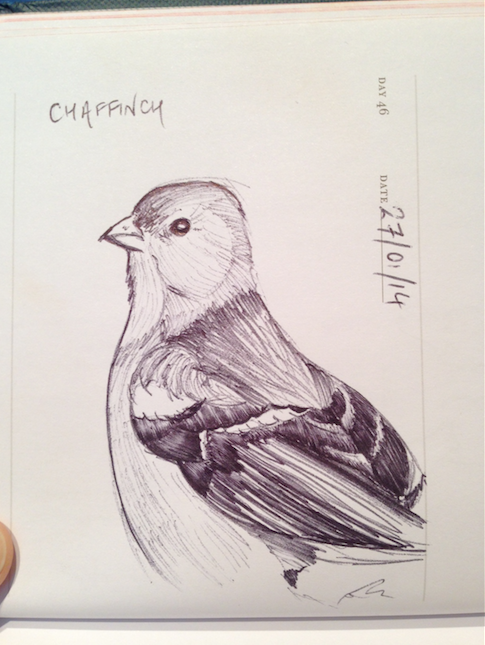 CHAFFINCH
DAY 46
DATE 27/01/14